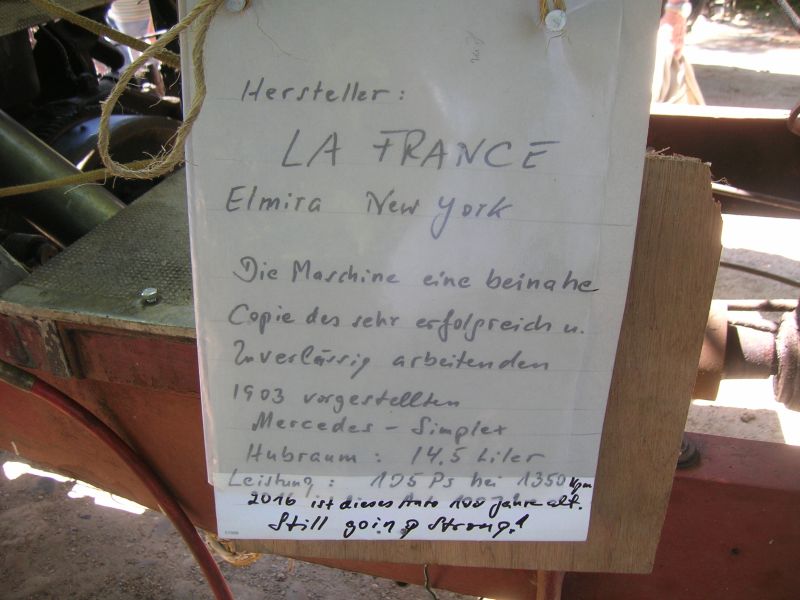 Hersteller:
LA FRANCE
Elmira New York
Die Maschine eine beinahe
Copie des sehr erfolgreich u.
Zuverlässig arbeitenden
1903 vorgestellten
Mercedes - Simplex
Hubraum: 14,5 Liter
Leistung: 105 Ps bei 1350 Upm
2016 ist dieses Auto 100 Jahre alt.
Still going Strong!